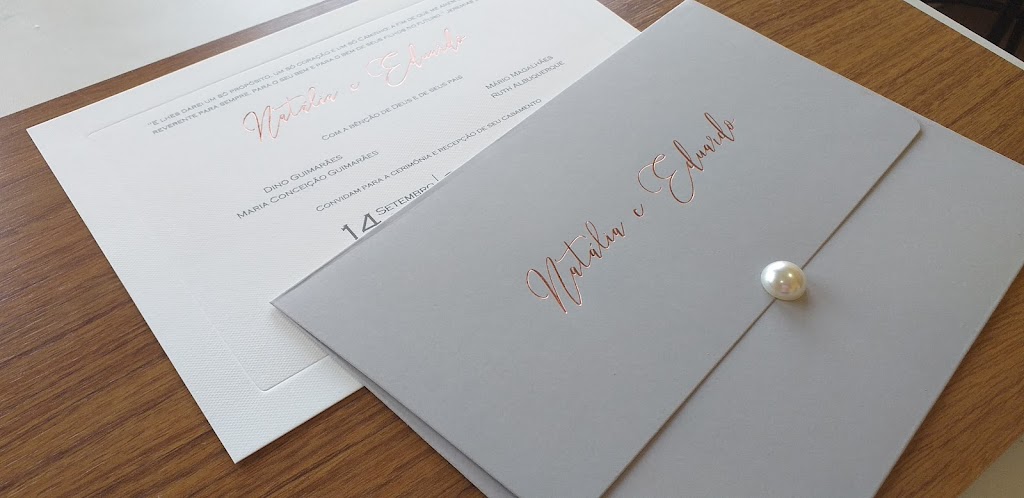 "E lhes darei um só propósito, um só coração e um só caminho, a fim de que me
reverente para sempre, para o seu bem e para o bem de seus filhos do futuro." Jeremias
Natália e Eduardo
Com a bênção de Deus e de seus pais
Dino Guimarães
Maria Conceição Guimarães
Mario Magalhães
Ruth Albuquerque
Convidam para a cerimônia e recepção de seu casamento
14 Setembro
Natália e Eduardo